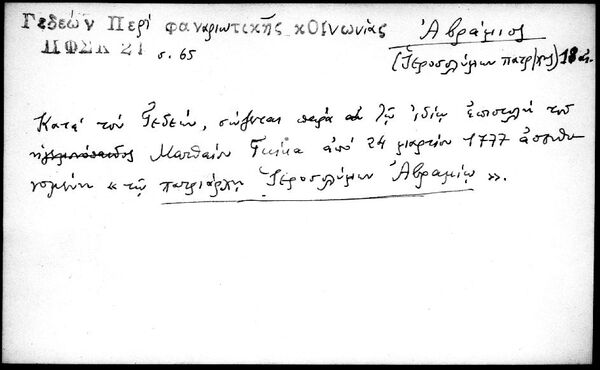 Γεδεών Περί φαναριωτικῆς κοινωνίας
ΠΦΣΚ 21 σ. 65
Ἀβράμιος
(Ἱεροσολύμων πατρ/χης) 18 αἰ.
Κατά τόν Γεδεών, σώζεται παρά τῷ ἰδίῳ ἐπιστολή τοῦ
Ματθαίου Γκίκα ἀπό 24 μαρτίου 1777 ἀπευθυ
νομένη « τῷ πατριάρχῃ Ἱεροσολύμων Ἀβραμίῳ ».